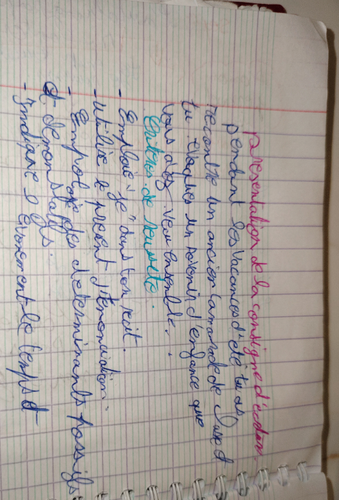 présentation de la consigne d'écriture
pendant les vacances d'été tu as
rencontré un ancien camarade de
tu un souvenir d'enfance que
vous avez vécu ensemble.
Critères de réussite:
- Emploie "je" dans ton récit.
- utilise le présent d'énonciation.
- Emploie des déterminants possessifs
et démonstratifs.
- Indique l'événement le temps et